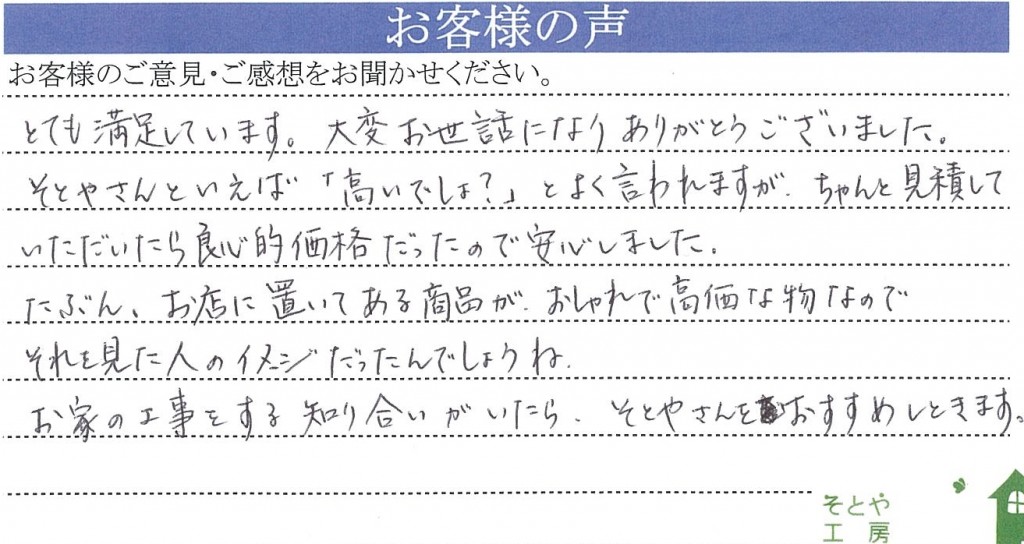 お客様の声
お客様のご意見・ご感想をお聞かせください。
とても満足しています。大変お世話になりありがとうございました。
そとやさんといえば「高いでしょ?」とよく言われますが、ちゃんと見積して
いただいたら良心的価格だったので安心しました。
たぶん、お店に置いてある商品が、おしゃれで高価な物なので
それを見た人のイメージだったんでしょうね。
お家の工事をする知り合いがいたら、そとやさんをおすすめしときます。
そとや
工房